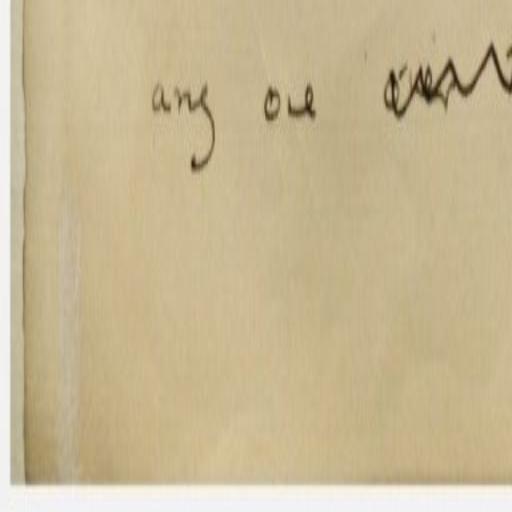 any one